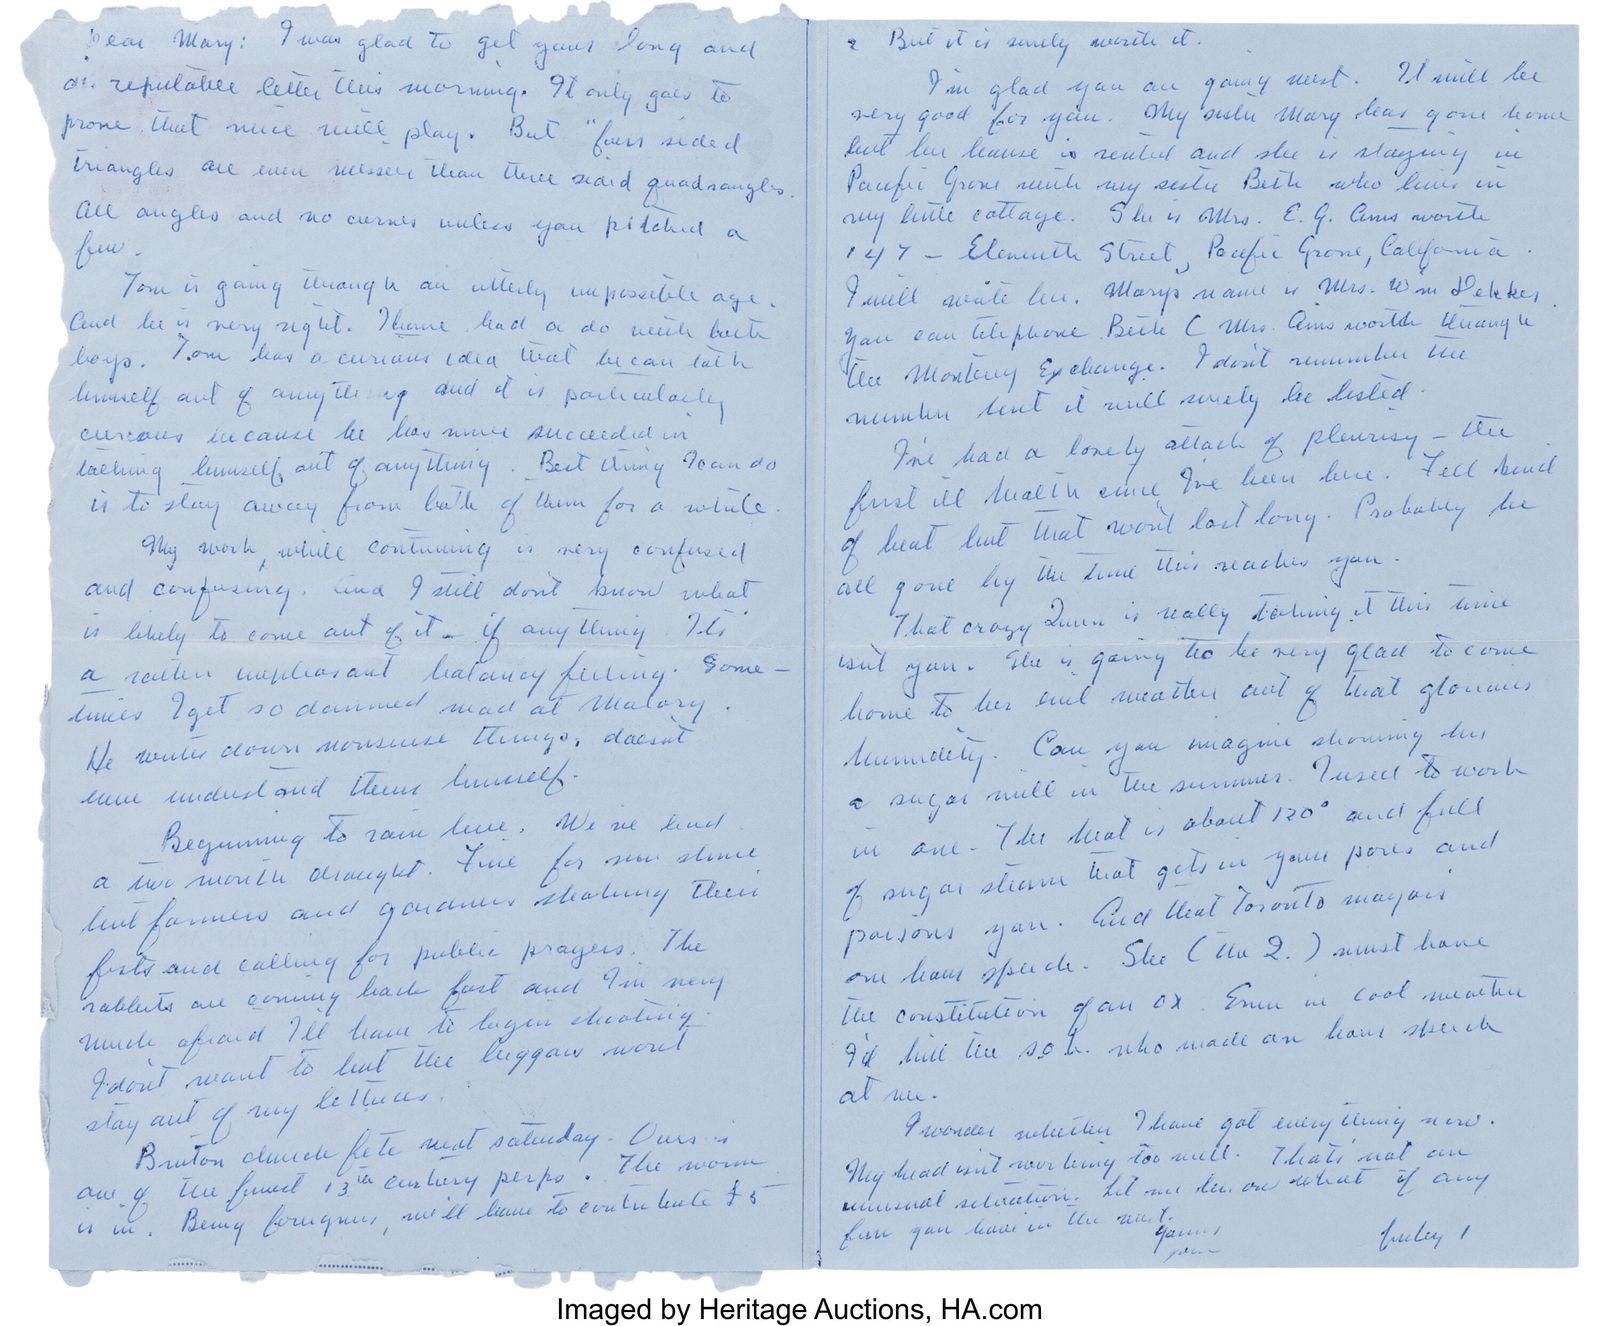 Dear Mary: I was glad to get your long and
disreputable letter this morning. It only goes to
prove that mice will play. But "four sided
triangles are even messier than three sided quadrangles.
All angles and no curves unless you pitched a
few.
Tom is going through an utterly impossible age.
And he is very right. I have had a do with both
boys. Tom has a curious idea that he can talk
himself out of anything and it is particularly
curious because he has never succeeded in
talking himself out of anything. Best thing I can do
is to stay away from both of them for a while.
My work, while continuing is very confused
and confusing. And I still don't know what
is likely to come out of it – if anything It's
a rather unpleasant balancy feeling. Some –
times I get so damned mad at Malory.
He writes down nonsense things, doesn't
even understand them himself.
Beginning to rain here. We've had
a two month drought. Fine for sun shine
but farmers and gardners shaking their
fists and calling for public prayers. The
rabbits are coming back fast and I'm very
much afraid I'll have to begin shooting.
I don't want to but the beggars won't
stay out of my lettuces.
Bruton church fete next saturday. Ours is
one of the finest 13th century perps. The worm
is in. Being foreigners, we'll have to contribute £5
2 But it is surely worth it.
I'm glad you are going west. It will be
very good for you. My sister Mary has gone home
but her house is rented and she is staying in
Pacific Grove with my sister Beth who lives in
my little cottage. She is Mrs. E. G. Ains worth
147 – Eleventh Street, Pacific Grove, California.
I will write her. Marys name is Mrs. Wm Dekker.
You can telephone Beth ( Mrs. Ains worth through
the Monterey Exchange. I don't remember the
number but it will surely be listed.
I've had a lovely attack of pleurisy – the
first ill health since I've been here. Feel kind
of beat but that won't last long. Probably be
all gone by the time this reaches you.
That crazy Queen is really taking it this time
isn't you. She is going to be very glad to come
home to her evil weather out of that glorious
humidity. Can you imagine showing her
a sugar mill in the summer. I used to work
in one. The heat is about 120° and full
of sugar steam that gets in your pores and
poisons you. And that Toronto mayors
one hour speech. She ( the Q. ) must have
the constitution of an ox. Even in cool weather
I'd kill the s.o.b. who made an hour speech
at me.
I wonder whether I have got everything now.
My head isn't working too well. That's not an
unusual situation. Let me know what if any
fun you have in the west.
yours
July 1
Imaged by Heritage Auctions, HA.com